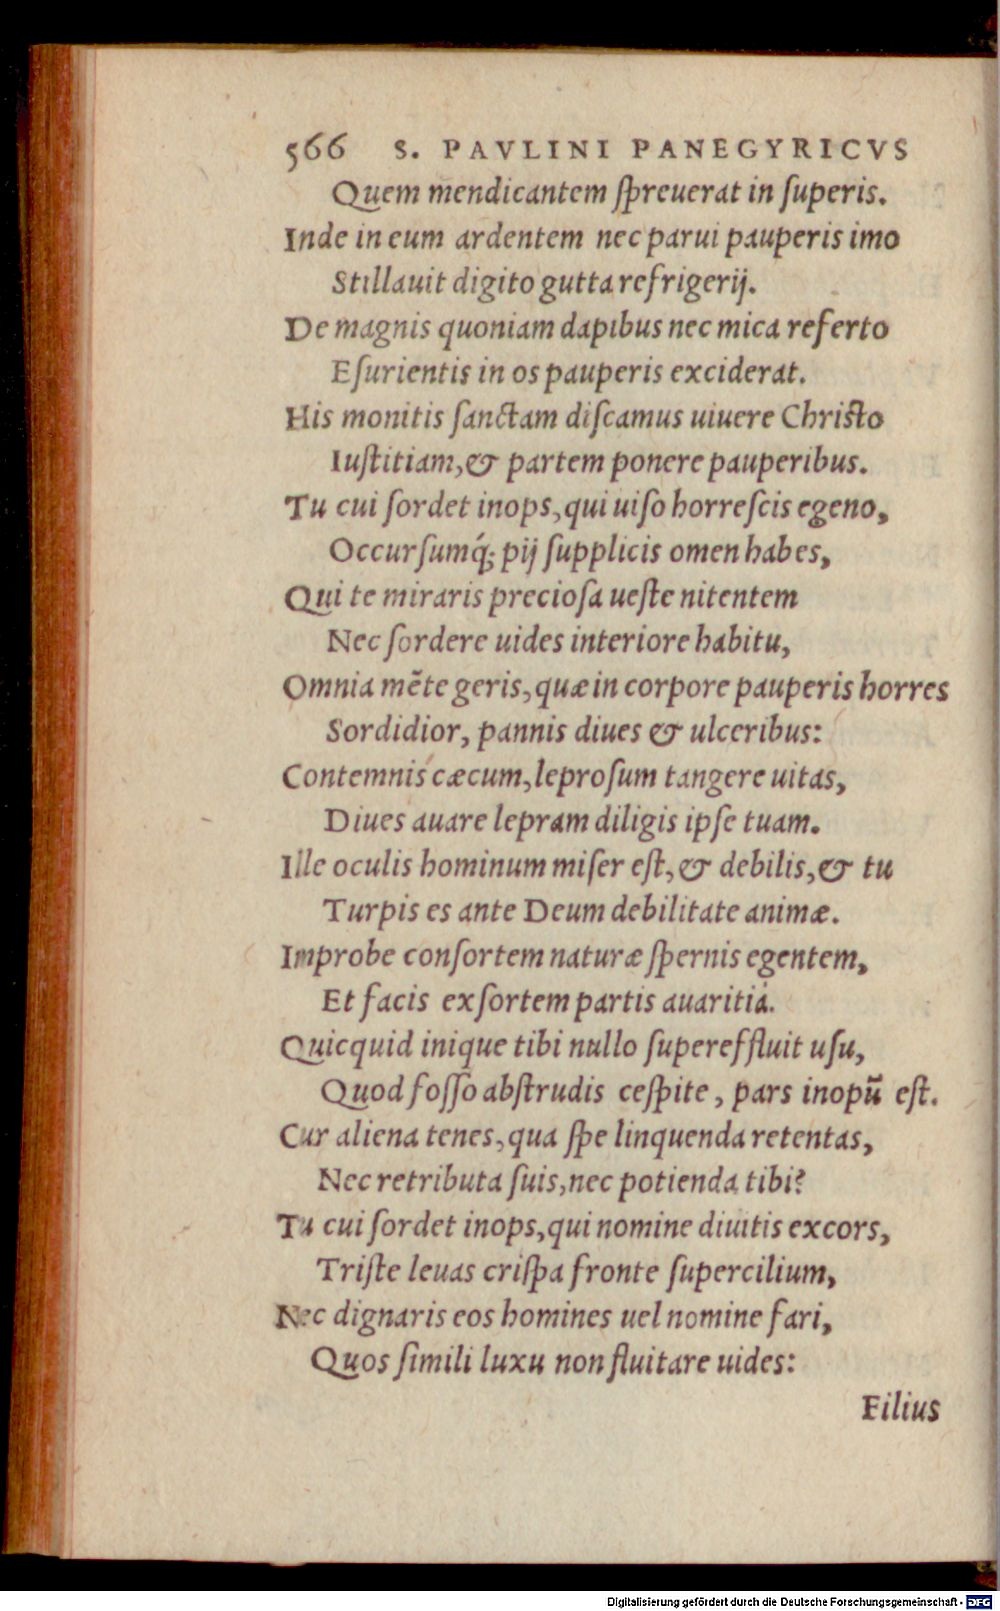 566 S. PAVLINI PANEGYRICVS
Quem mendicantem ſpreuerat in ſuperis.
Inde in eum ardentem nec parui pauperis imo
Stillauit digito gutta refrigerij.
De magnis quoniam dapibus nec mica referto
Eſurientis in os pauperis exciderat.
His monitis ſanctam diſcamus uiuere Chriſto
Iuſtitiam, & partem ponere pauperibus.
Tu cui ſordet inops, qui uiſo horreſcis egeno,
Occurſumq́; pij ſupplicis omen habes,
Qui te miraris precioſa ueſte nitentem
Nec ſordere uides interiore habitu,
Omnia mẽte geris, quæ in corpore pauperis horres
Sordidior, pannis diues & ulceribus:
Contemnis cæcum, leproſum tangere uitas,
Diues auare lepram diligis ipſe tuam.
Ille oculis hominum miſer eſt, & debilis, & tu
Turpis es ante Deum debilitate animæ.
Improbe conſortem naturæ ſpernis egentem,
Et facis exſortem partis auaritiá.
Quicquid inique tibi nullo ſupereffluit uſu,
Quod foſſo abſtrudis ceſpite, pars inopũ eſt.
Cur aliena tenes, qua ſpe linquenda retentas,
Nec retributa ſuis, nec potienda tibi?
Tu cui ſordet inops, qui nomine diuitis excors,
Triſte leuas criſpa fronte ſupercilium,
Nec dignaris eos homines uel nomine fari,
Quos ſimili luxu non fluitare uides:
Filius
Digitalisierung gefördert durch die Deutsche Forschungsgemeinschaft - DFG